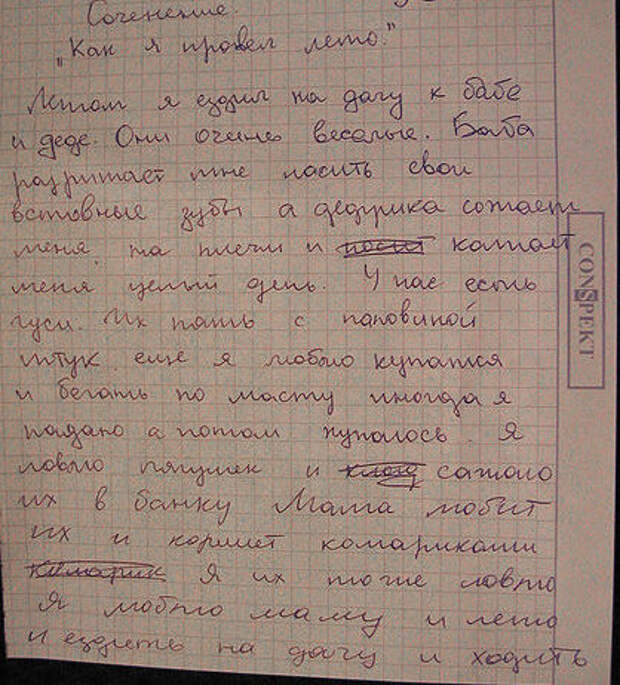 Соченение.
"Как я провел лето."
Летом я ездил на дачу к бабе
и деде. Они очень веселые. Баба
разритает мне насить свои
встовные зубы а дедушка сожает
меня на плечи и катает
меня целый день. У нас есть
гуси. Их пять с паповиной
штук. еще я люблю купатся
и бегать по масту иногда я
падаю а потом купаюсь. Я
ловлю лягушек и сажаю
их в банку Мама любит
их и кормит комариками
комарик Я их тоже ловлю
Я люблю маму и лето
и ездить на дачу и ходить
CONSPEKT